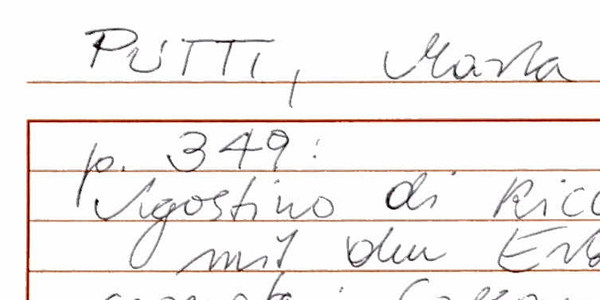 PUTTI, Marla
p. 349:
Agostino di Ricc
mit den Erb